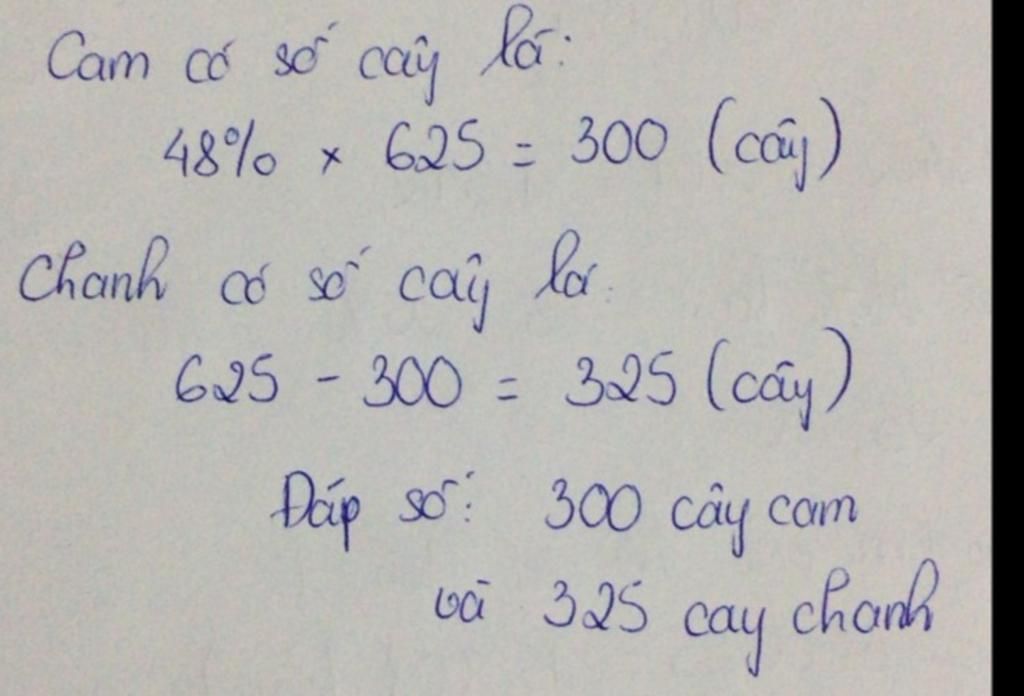 Cam có số cây là:
48% × 625 = 300 (cây)
Chanh có số cây là.
625 - 300 = 325 (cây)
Đáp số: 300 cây cam
và 325 cay chanh